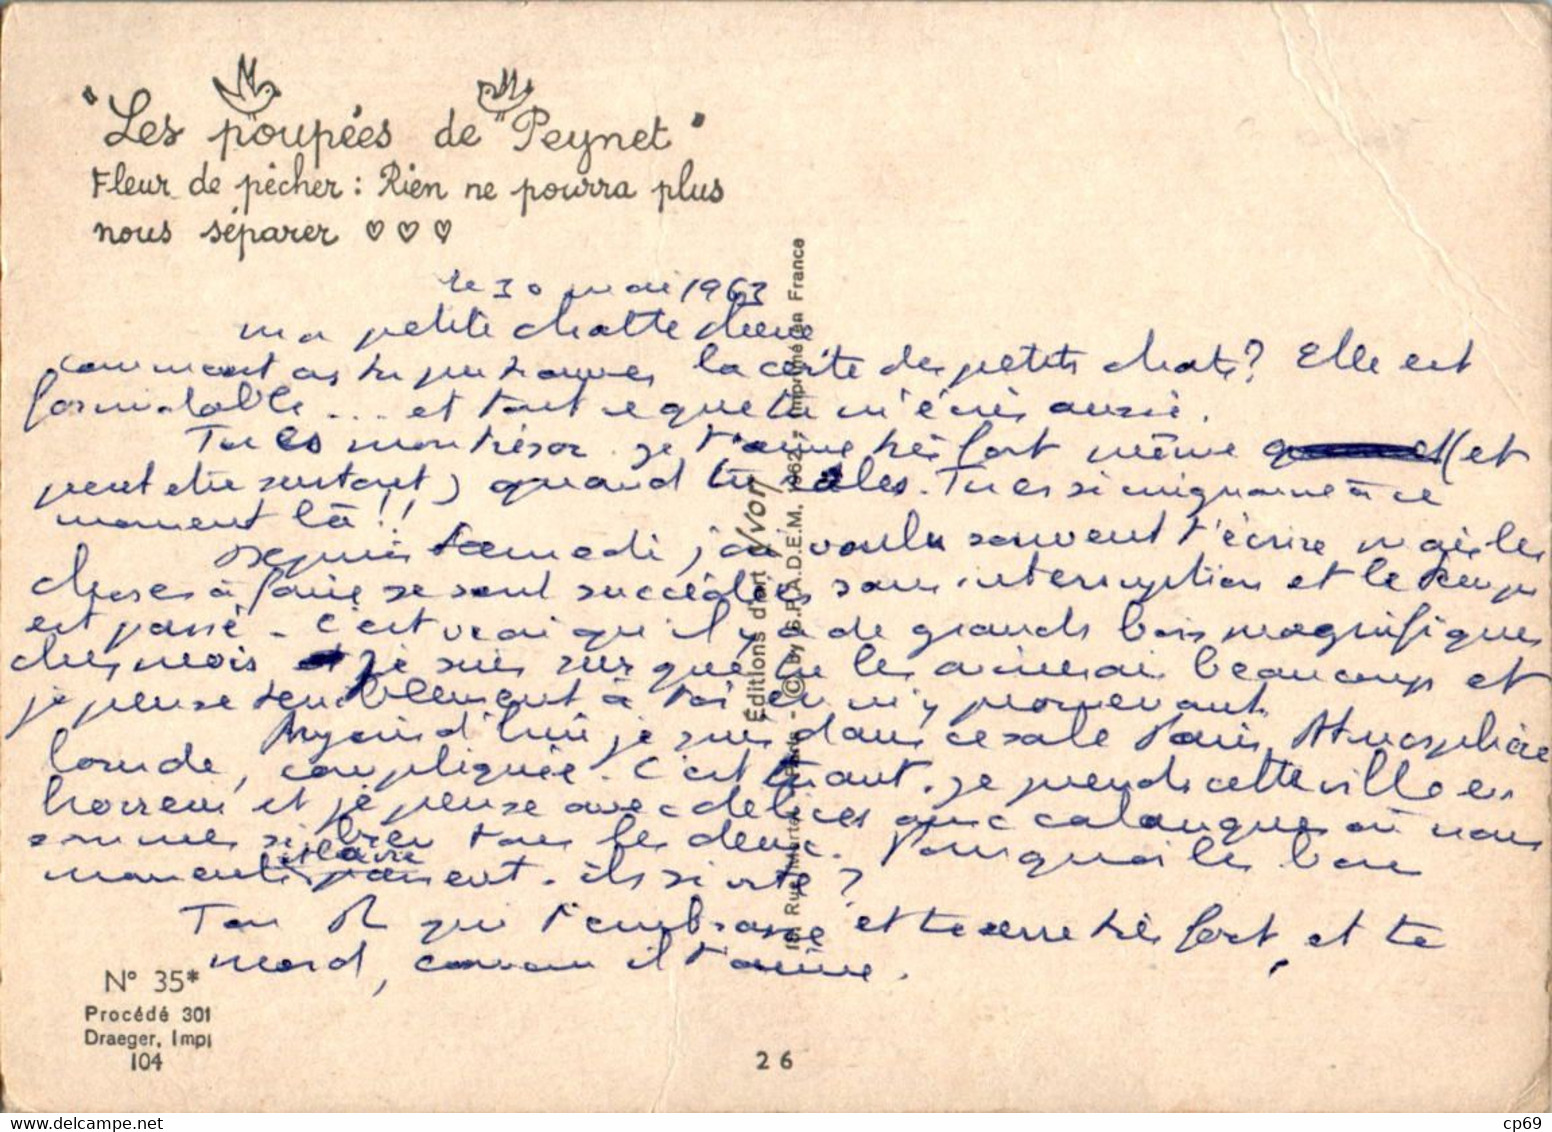 "Les poupées de "Peynet"
Fleur de pêcher : Rien ne pourra plus
nous séparer ♡ ♡ ♡
le 30 mai 1963
ma petite chatte cherie
comment as tu pu trouver la carte des petits chats ? Elle est
formidable ... et tout ce que tu m'écris aussi.
Tu es mon trésor. je t'aime très fort même (et
peut etre surtout) quand tu râles. Tu es si mignonne à ce
moment là !!
Depuis samedi j'ai voulu souvent t'écrire mais les
choses à faire se sont succédées sans interruption et le temps
est passé - C'est vrai qu'il y a de grands bois magnifiques
chez moi je suis sur que tu les aimerai beaucoup et
je pense terriblement à toi en m'y promenant
Aujourd'hui je suis dans ce sale Paris, Atmosphère
lourde, compliquée. C'est tuant. je prends cette ville en
horreur et je pense avec delices aux calanques où nous
sommes si bien tous les deux. Pourquoi les bons
moments passent-ils si vite ?
Ton qui t'embrasse et te serre très fort, et te
mord, comme il t'aime.
Éditions d'art Yvon
18, Rue Paris - © by S.P.A.D.E.M. 1962 - Imprimé en France
N° 35*
Procédé 301
Draeger, Impr
104
26
delcampe.net
cp69